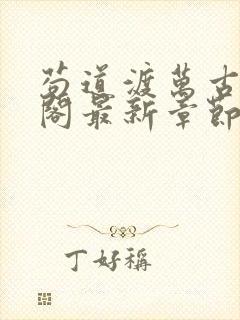 苟道渡萬古
閣最新章節
丁好稱